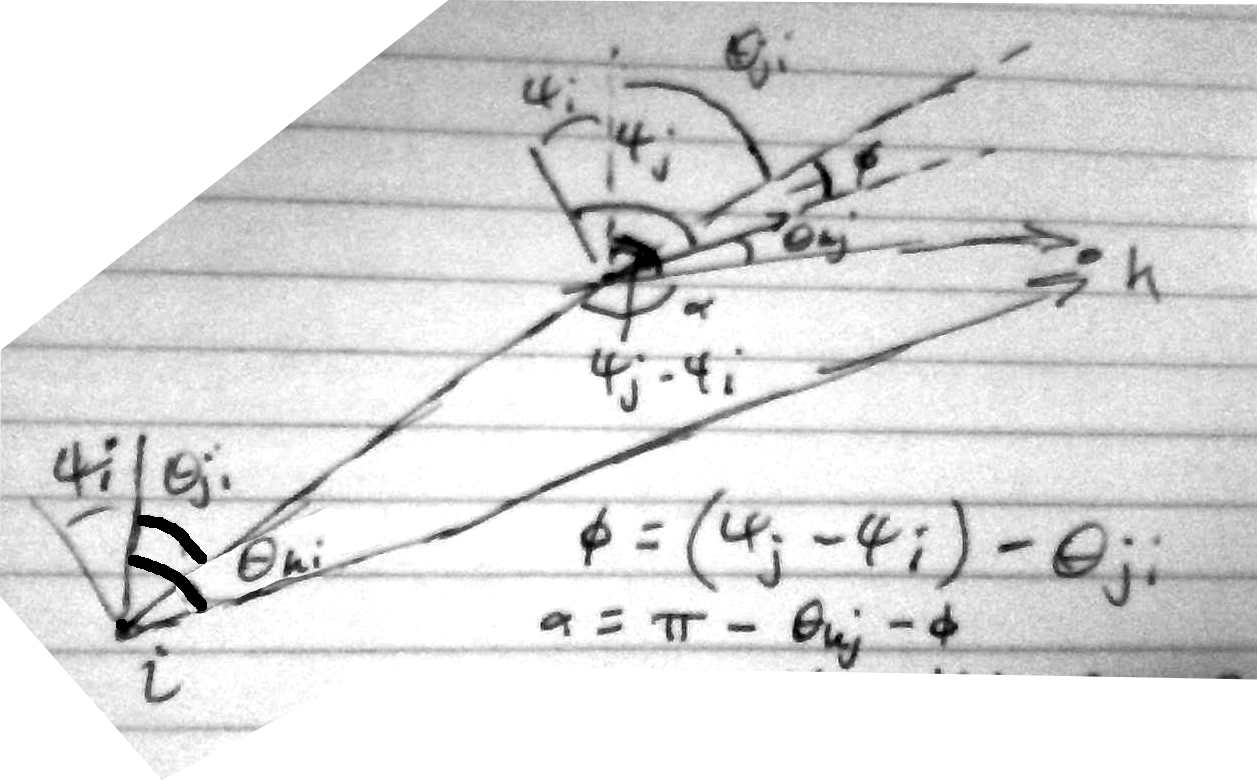 θji
ψi
ψj
φ
θhj
h
α
ψj - ψi
ψi θji
θhi
φ = (ψj - ψi) - θji
α = π - θhj - φ
i